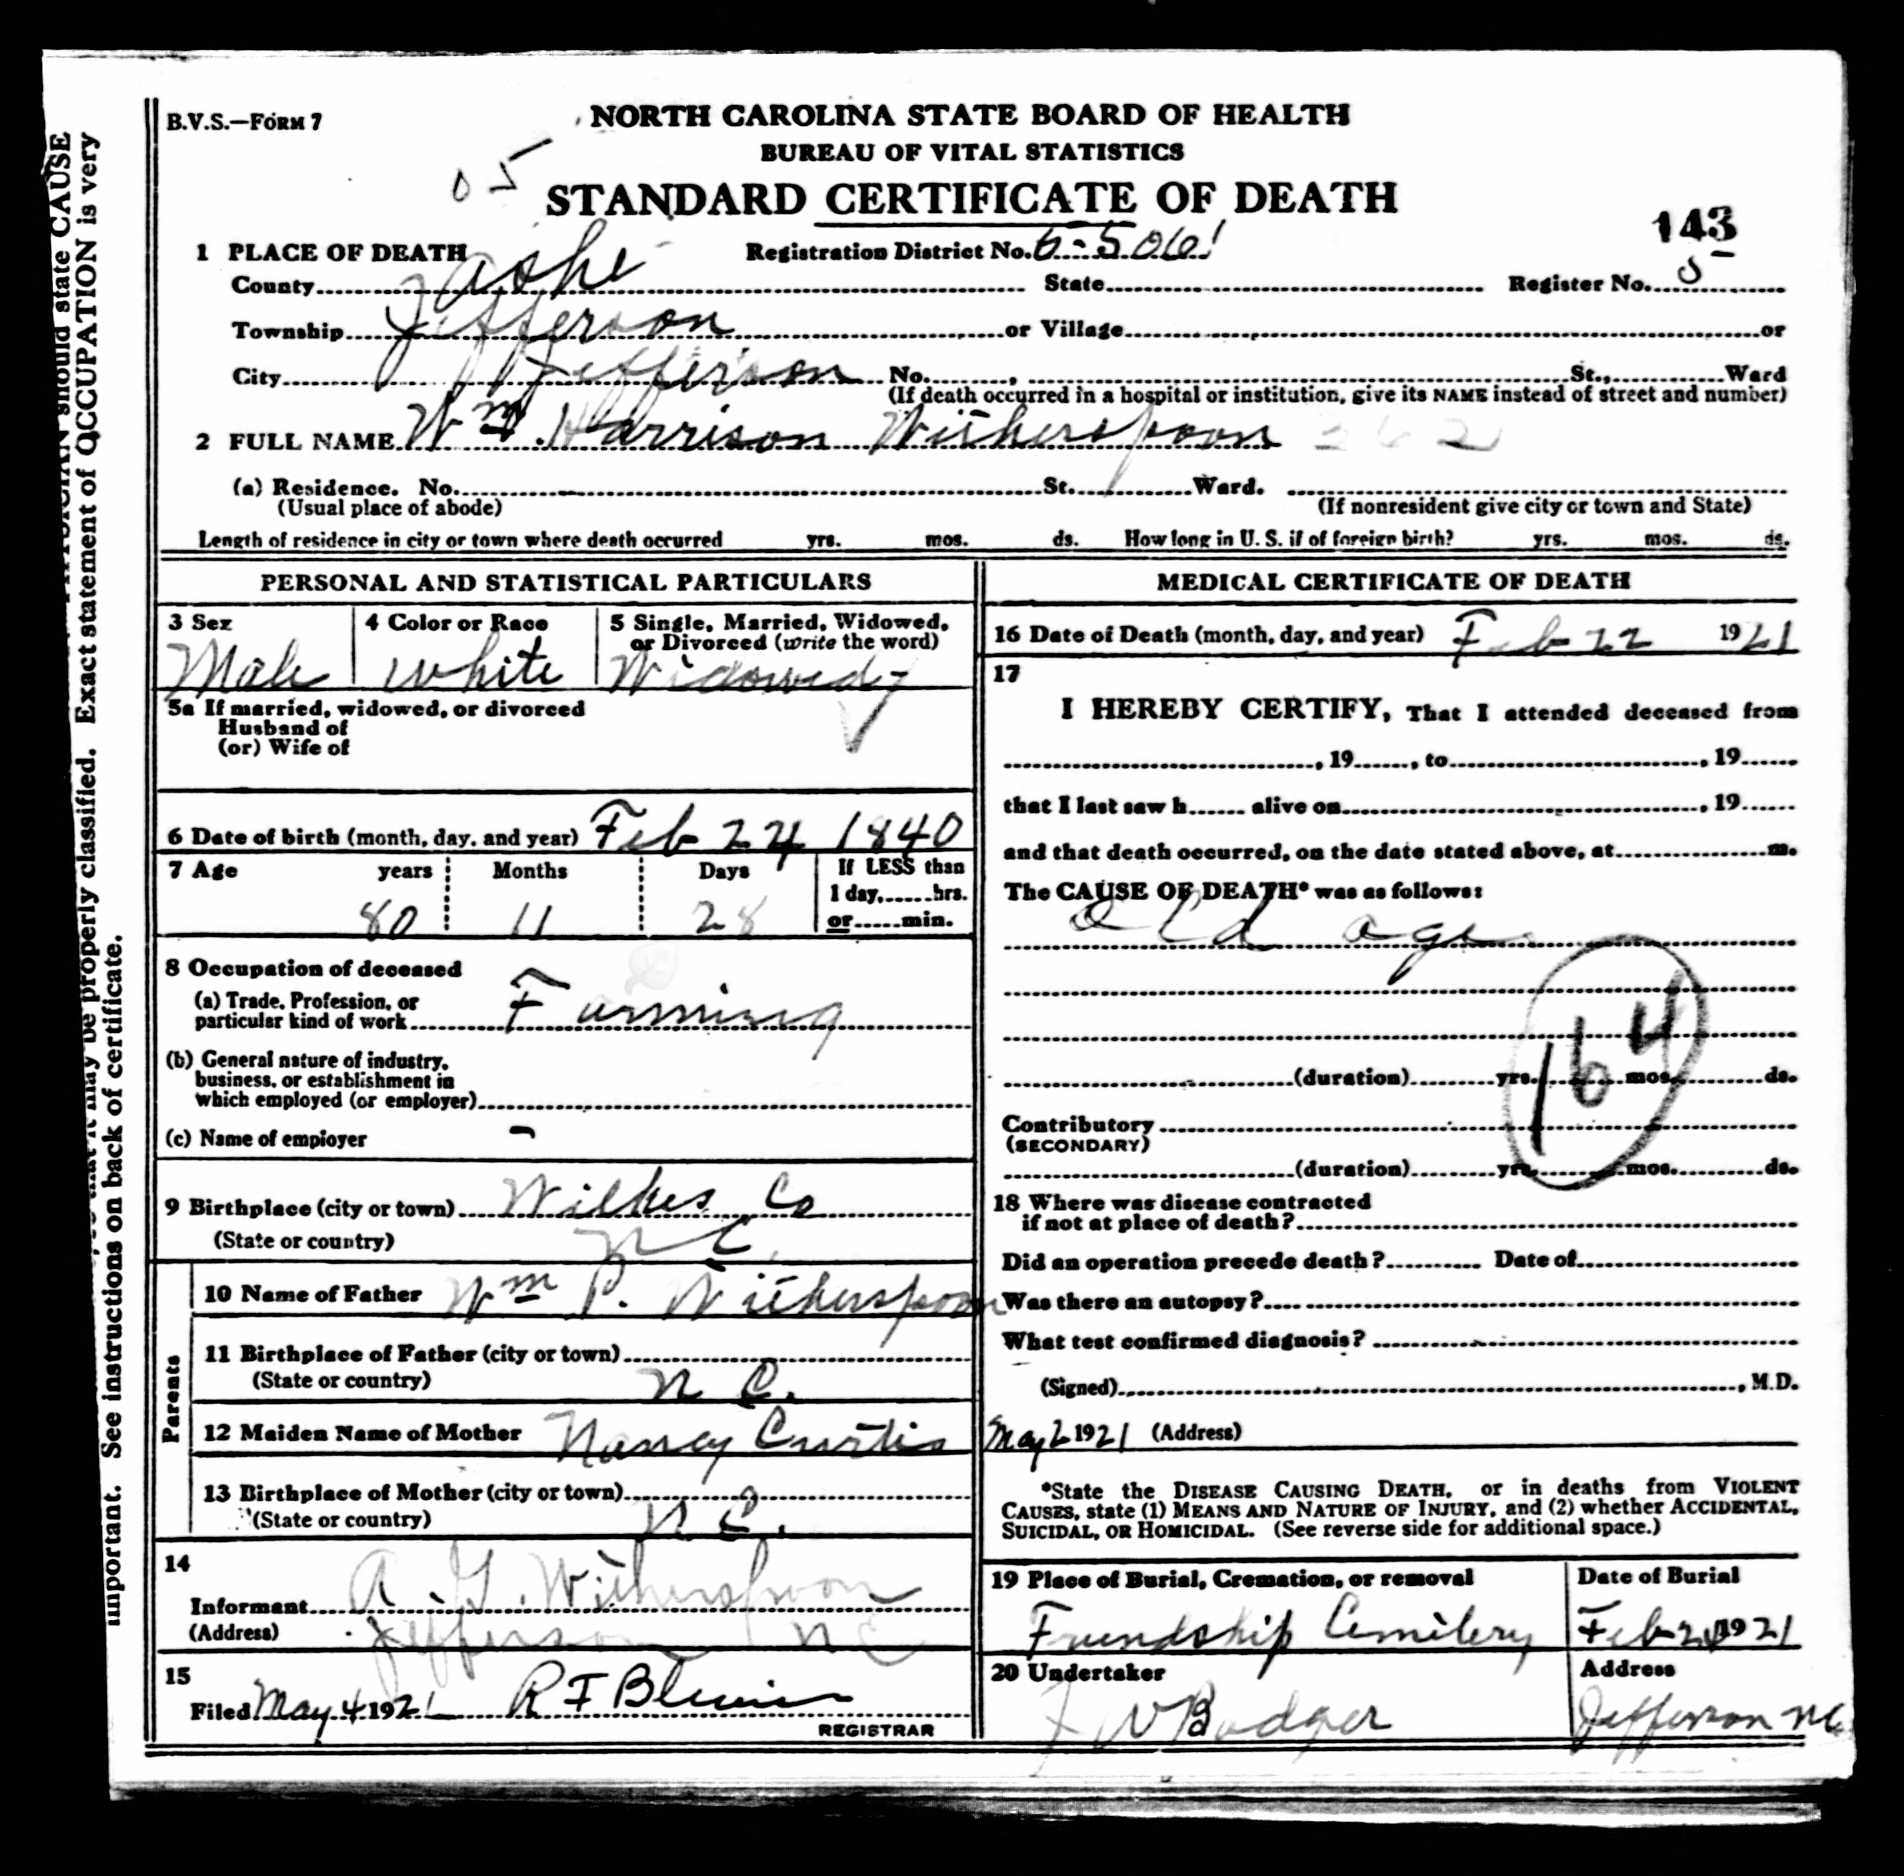 B.V.S.—FORM 7
NORTH CAROLINA STATE BOARD OF HEALTH
BUREAU OF VITAL STATISTICS
05
STANDARD CERTIFICATE OF DEATH
143
1 PLACE OF DEATH Registration District No. 5-5061
County Ashe State Register No. 5
Township Jefferson or Village or
City Jefferson No. , St., Ward
(If death occurred in a hospital or institution, give its NAME instead of street and number)
2 FULL NAME Wm. Harrison Witherspoon 262
(a) Residence. No. St. Ward.
(Usual place of abode) (If nonresident give city or town and State)
Length of residence in city or town where death occurred yrs. mos. ds. How long in U. S. if of foreign birth? yrs. mos. ds.
PERSONAL AND STATISTICAL PARTICULARS
3 Sex 4 Color or Race 5 Single, Married, Widowed,
or Divorced (write the word)
Male White Widowed
5a If married, widowed, or divorced
Husband of
(or) Wife of
6 Date of birth (month, day, and year) Feb 24 1840
7 Age years Months Days If LESS than
1 day, hrs.
80 11 28 or min.
8 Occupation of deceased
(a) Trade, Profession, or
particular kind of work Farming
(b) General nature of industry,
business, or establishment in
which employed (or employer)
(c) Name of employer -
9 Birthplace (city or town) Wilkes Co
(State or country) N C.
Parents
10 Name of Father Wm P. Witherspoon
11 Birthplace of Father (city or town)
(State or country) N C.
12 Maiden Name of Mother Nancy Curtis
13 Birthplace of Mother (city or town)
(State or country) N C.
14
Informant A. G. Witherspoon
(Address) Jefferson N C
15
Filed May 4 1921 R F Blevins
REGISTRAR
MEDICAL CERTIFICATE OF DEATH
16 Date of Death (month, day, and year) Feb 22 1921
17
I HEREBY CERTIFY, That I attended deceased from
, 19 , to , 19
that I last saw h alive on , 19
and that death occurred, on the date stated above, at m.
The CAUSE OF DEATH* was as follows:
Old age
164
(duration) yrs. mos. ds.
Contributory
(SECONDARY)
(duration) yrs. mos. ds.
18 Where was disease contracted
if not at place of death?
Did an operation precede death? Date of
Was there an autopsy?
What test confirmed diagnosis?
(Signed) , M.D.
May 2 1921 (Address)
*State the DISEASE CAUSING DEATH, or in deaths from VIOLENT
CAUSES, state (1) MEANS AND NATURE OF INJURY, and (2) whether ACCIDENTAL,
SUICIDAL, OR HOMICIDAL. (See reverse side for additional space.)
19 Place of Burial, Cremation, or removal Date of Burial
Friendship Cemitery Feb 1921
20 Undertaker Address
J W Badger Jefferson N C
should state CAUSE
Exact statement of OCCUPATION is very
may be properly classified.
important. See instructions on back of certificate.